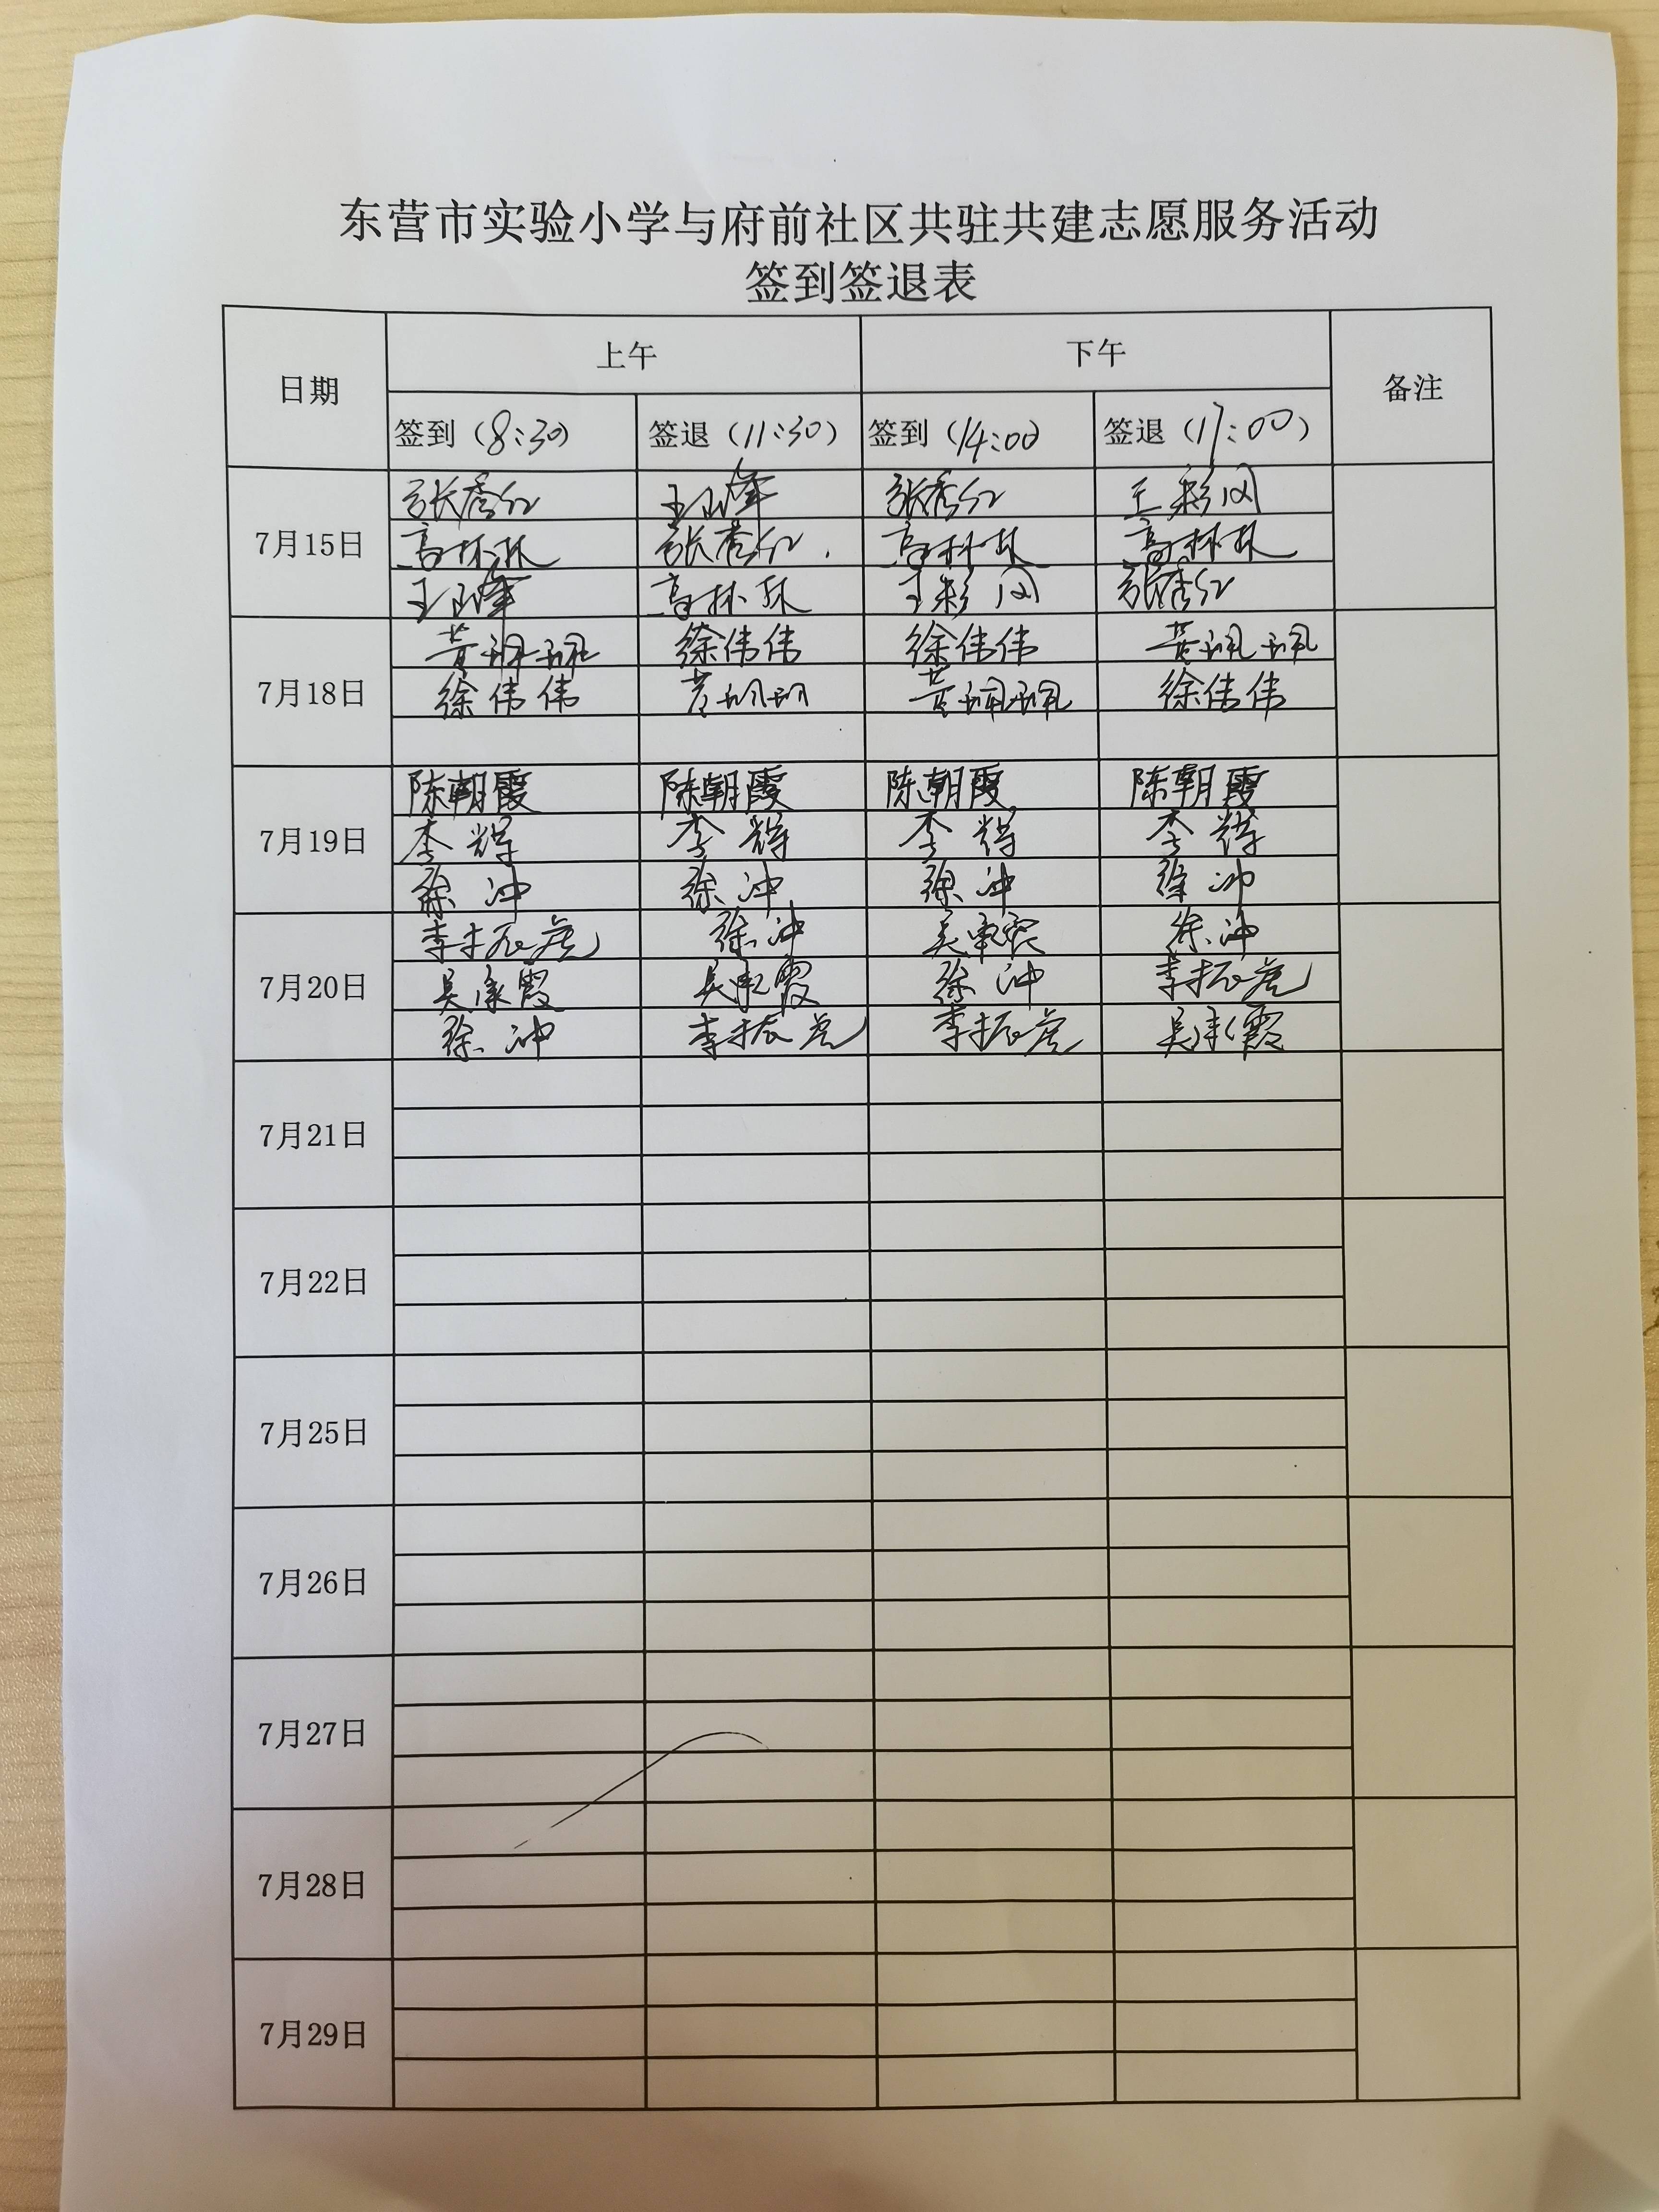 东营市实验小学与府前社区共驻共建志愿服务活动
签到签退表
日期 上午 下午 备注
签到（8:30） 签退（11:30） 签到（14:00） 签退（17:00）
7月15日
张秀红 王山峰 张秀红 王彩闪
高林林 张秀红 高林林 高林林
王山峰 高林林 王彩闪 张秀红
7月18日
黄珮珮 徐伟伟 徐伟伟 黄珮珮
徐伟伟 黄珮珮 黄珮珮 徐伟伟
7月19日
陈朝霞 陈朝霞 陈朝霞 陈朝霞
李辉 李辉 李辉 李辉
徐冲 徐冲 徐冲 徐冲
7月20日
李振虎 徐冲 吴承霞 徐冲
吴承霞 吴承霞 徐冲 李振虎
徐冲 李振虎 李振虎 吴承霞
7月21日
7月22日
7月25日
7月26日
7月27日
7月28日
7月29日